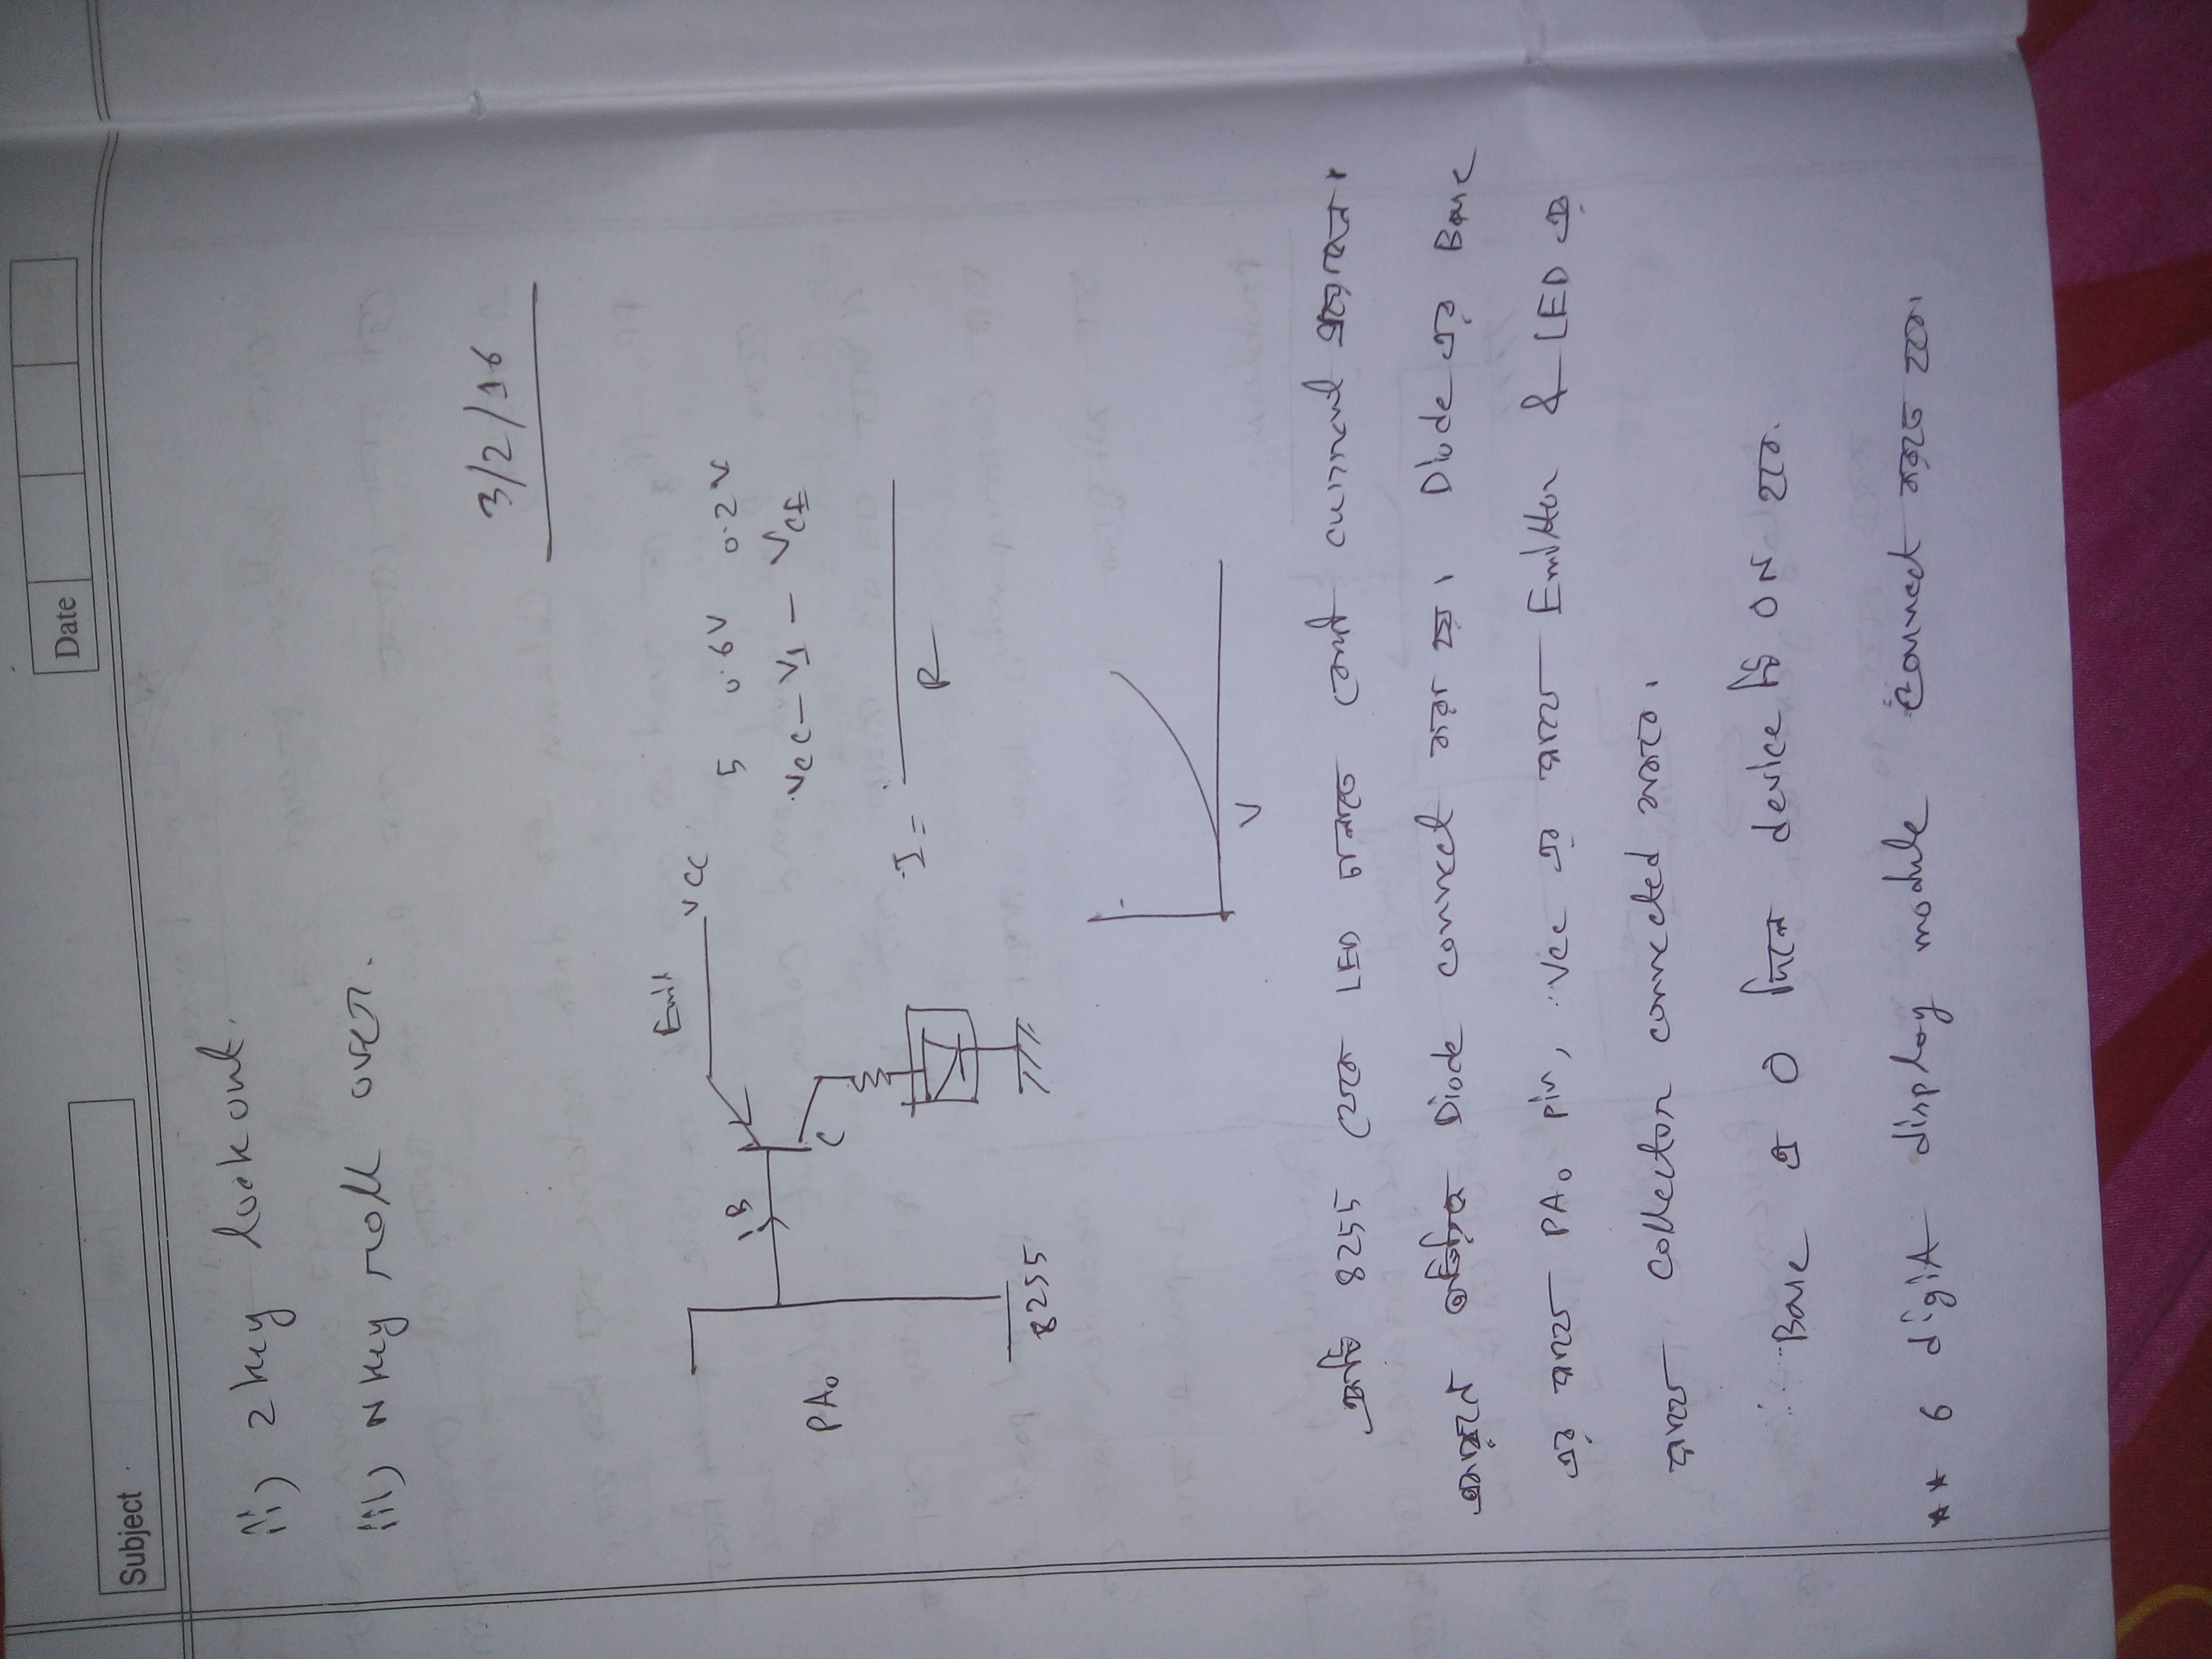 Subject
Date
ii) 2 key lookout.
iii) N key roll over.
3/2/16
Emit
VCC
5 0.6V 0.2V
I =
VCC - V1 - VCE
R
PA0
iB
C
8255
V
8255 থেকে LED চালাতে current
Diode connect করা হয়। Diode এর Base
এর সাথে PA0 pin, Vcc এর সাথে Emitter & LED এর
সাথে collector connected থাকবে।
Base এ 0 দিলে device টি ON হবে.
** 6 digit display module connect করতে হবে.